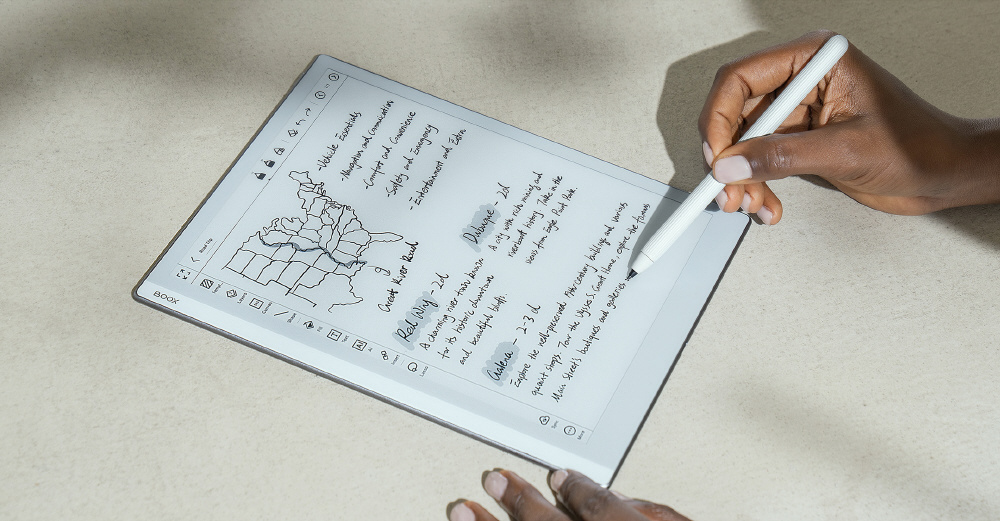 BOOX
Road Trip
-Vehicle Essentials
-Navigation and Communication
-Comfort and Convenience
-Safety and Emergency
-Entertainment and Extra
Great River Road
Red Wing - 2d
A charming river town known
for its historic downtown
and beautiful bluffs.
Dubuque - 2d
A city with rich mining and
riverboat history. Take in the
views from Eagle Point Park.
Galena - 2-3 d
Explore the well-preserved 19th century buildings and various
quaint shops. Tour the Ulysses S. Grant Home, explore the famous
Main Street's boutiques and galleries
Layers
Text
AI
More